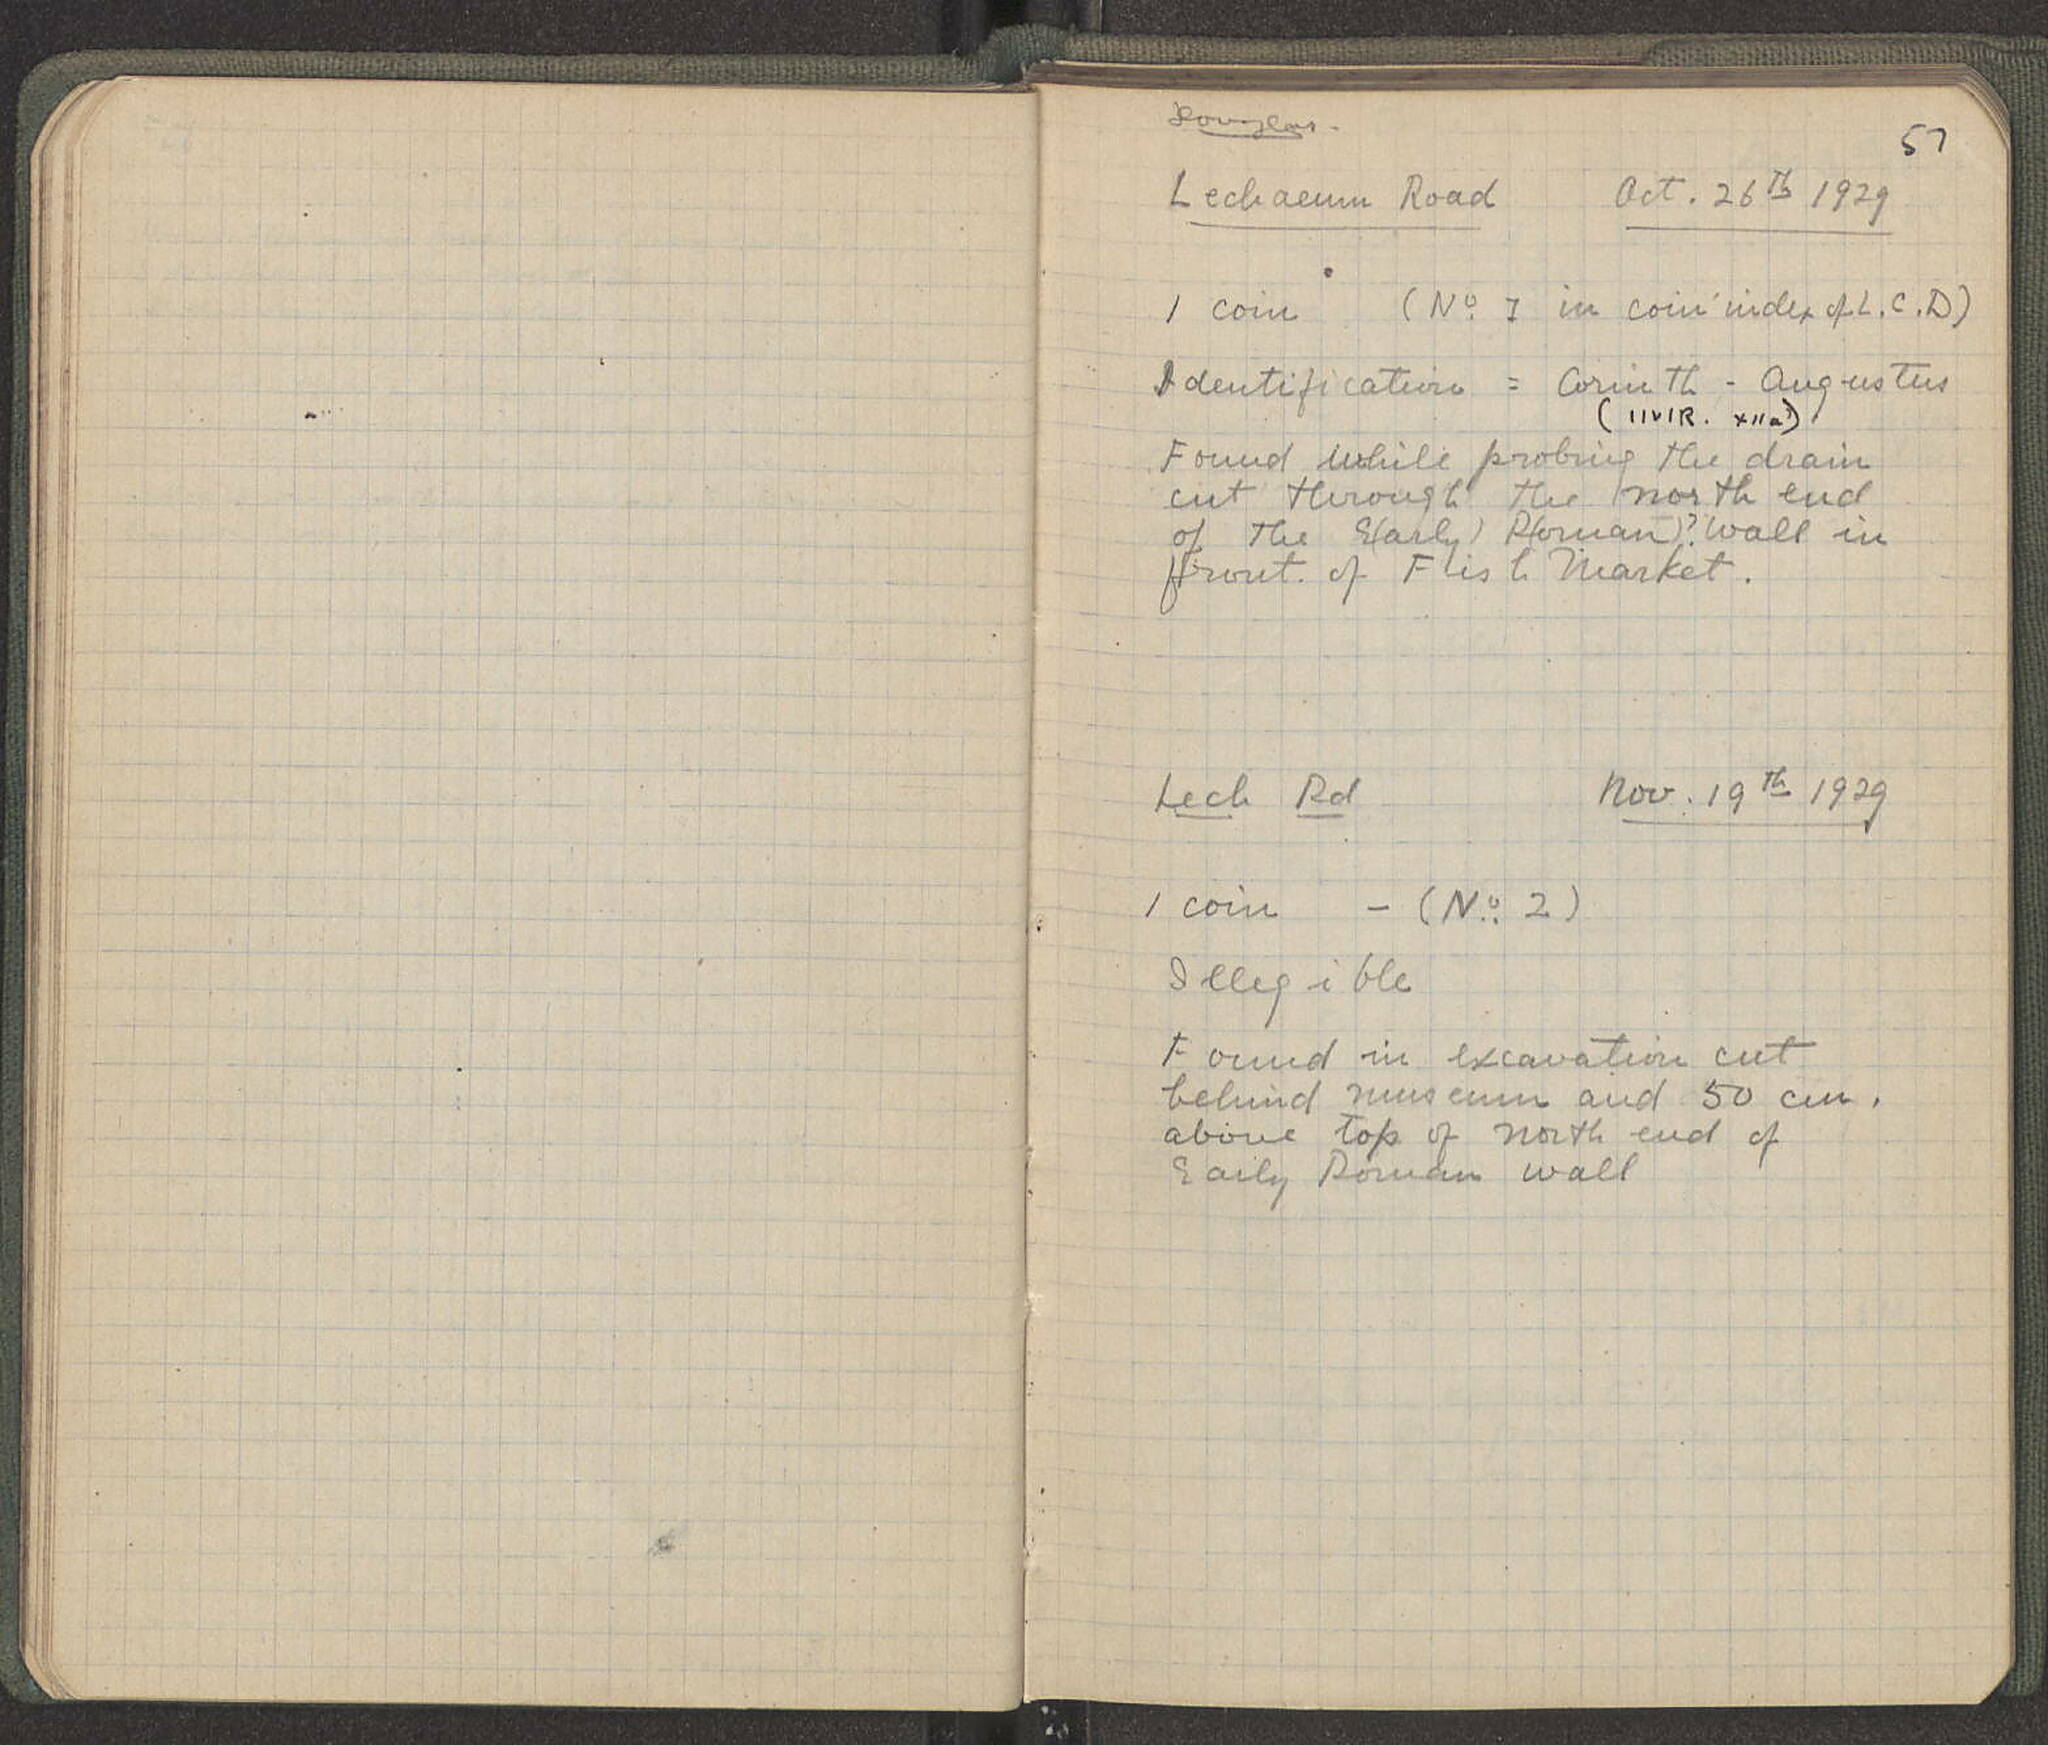 Douglas.
57
Lechaeum Road Oct. 26th 1929
1 coin (No. 1 in coin index of L.C.D)
Identification = Corinth - Augustus
(IIVIR. XIIa)
Found while probing the drain
cut through the north end
of the E(arly) R(oman)? wall in
front of Fish Market.
Lech Rd Nov. 19th 1929
1 coin - (No. 2)
Illegible
Found in excavation cut
behind museum and 50 cm.
above top of north end of
Early Roman wall